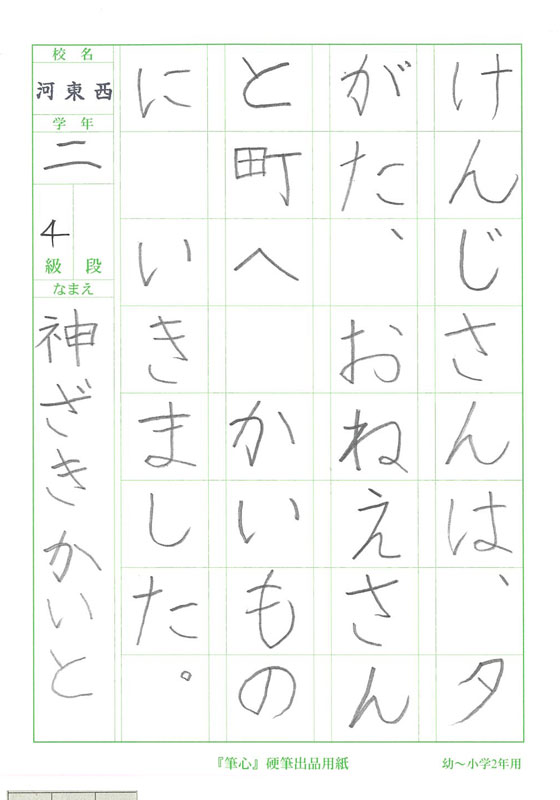 けんじさんは、夕
がた、おねえさん
と町へ かいもの
に いきました。
校名
河東西
学年
二
4
級 段
なまえ
神ざきかいと
『筆心』硬筆出品用紙
幼〜小学2年用